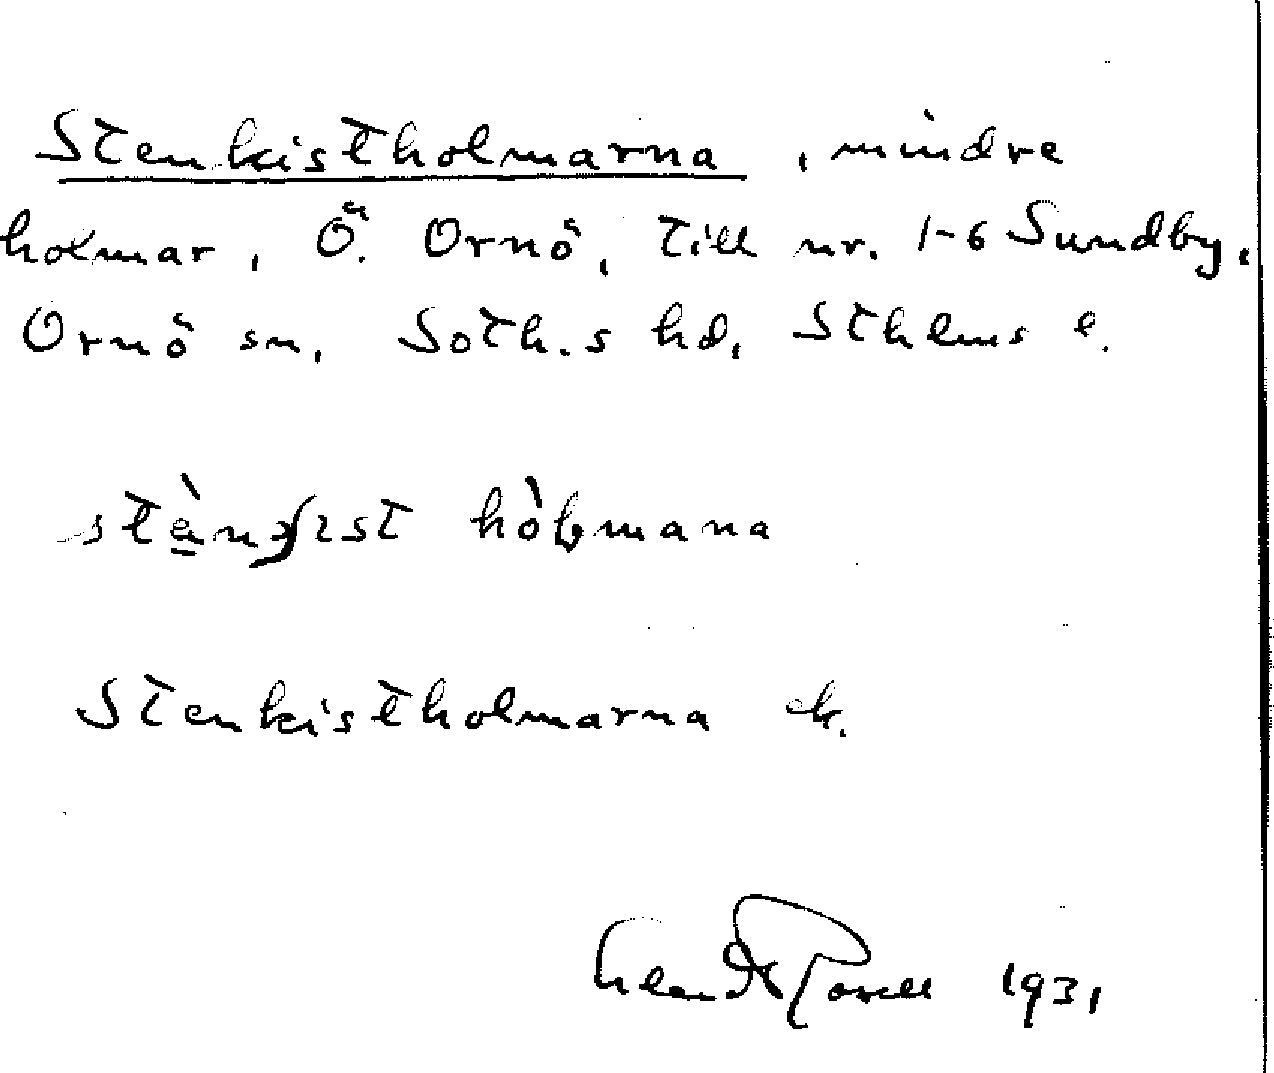 Stenkistholmarna, mindre
holmar, Ö. Ornö, till nr. 1-6 Sundby,
Ornö sn, Soth.s hd, Sthlms l.
hòɫmana
Stenkistholmarna ek.
1931